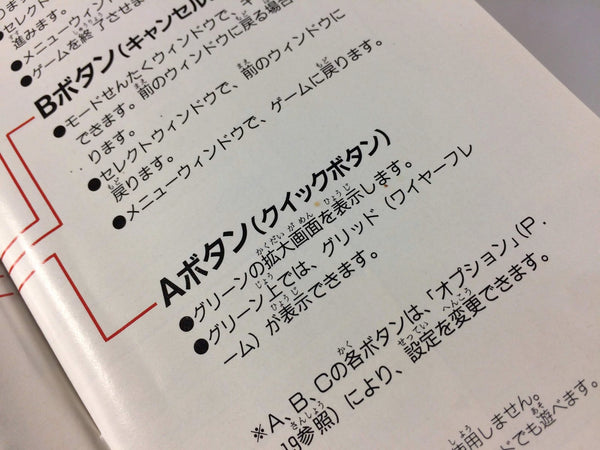 進みます。
●セレクトウィンドウで、
●メニューウィンドウ
●ゲームを終了させま
Bボタン(キャンセル
●モードせんたくウィンドウで、キ
できます。前のウィンドウに戻る場合
ります。
●セレクトウィンドウで、前のウィンドウに
戻ります。
●メニューウィンドウで、ゲームに戻ります。
Aボタン(クイックボタン)
●グリーンの拡大画面を表示します。
●グリーン上では、グリッド(ワイヤーフレ
ーム)が表示できます。
※A、B、Cの各ボタンは、「オプション」(P.
19参照)により、設定を変更できます。
使用しません。
ドでも遊べます。